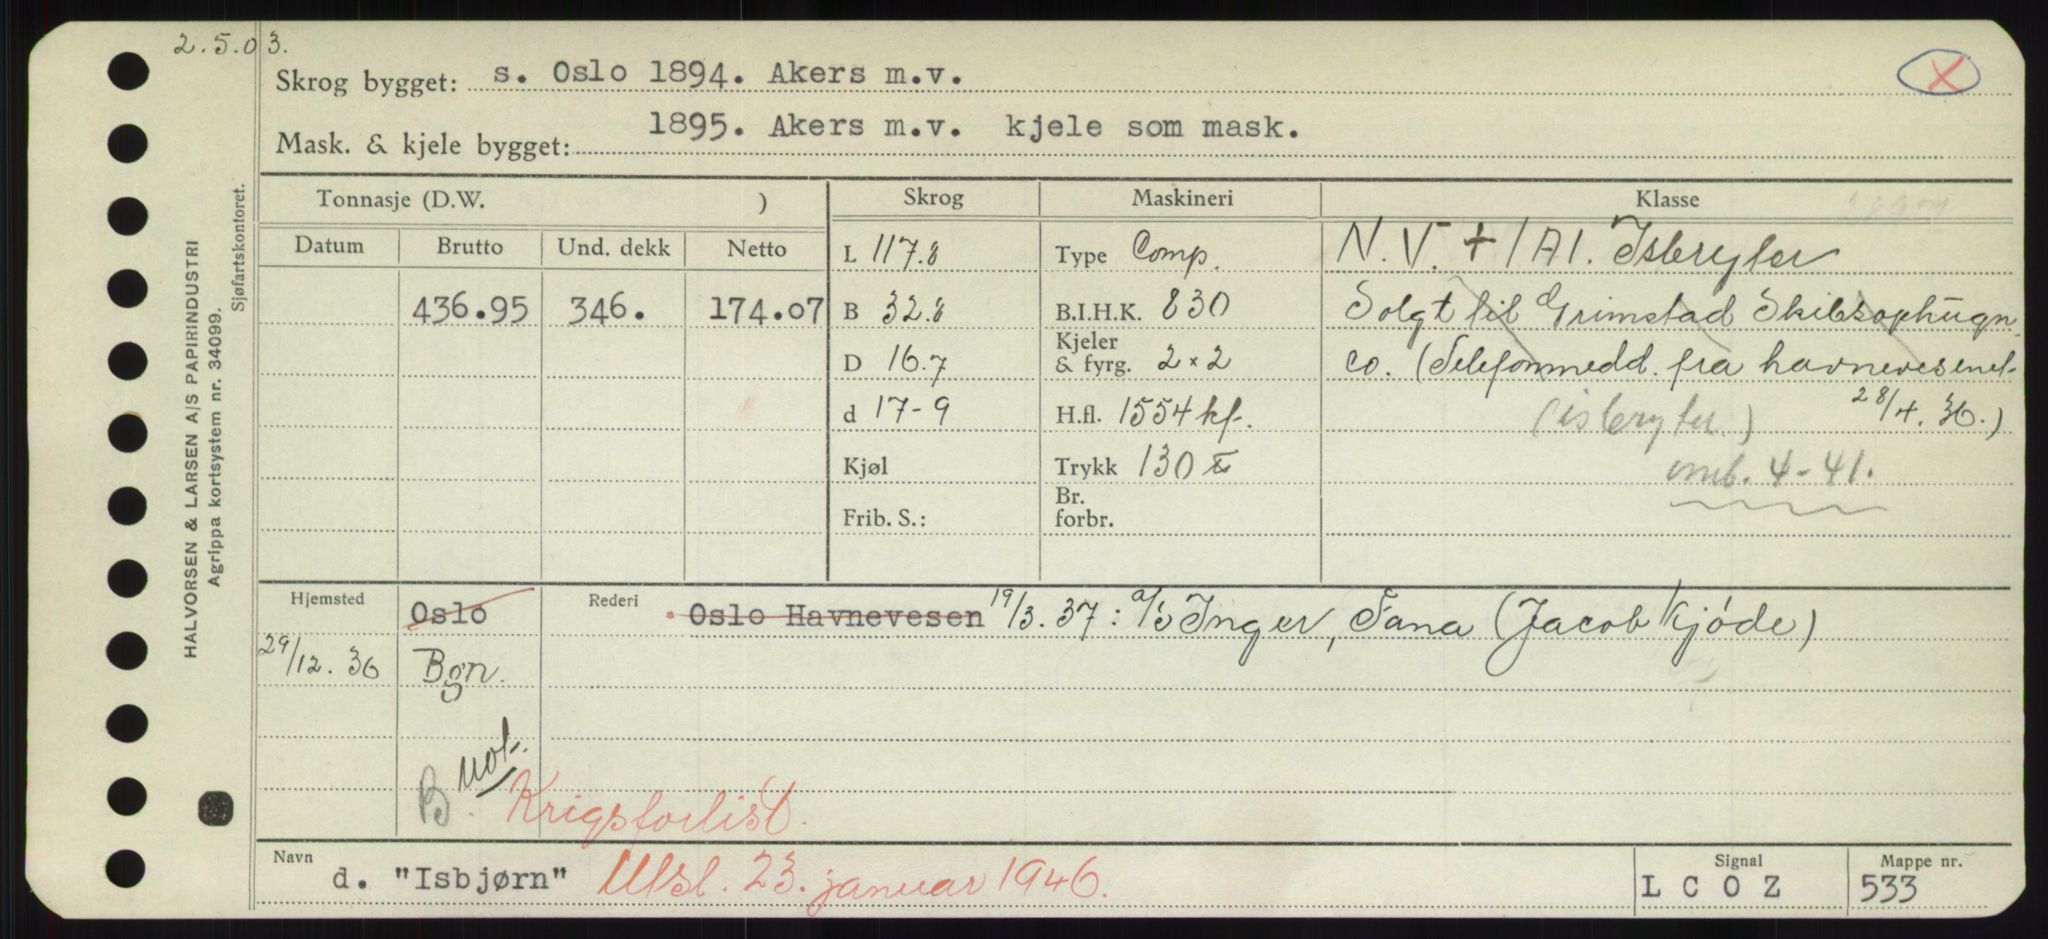 2.5.03.
X
Skrog bygget: s. Oslo 1894. Akers m.v.
Mask. & kjele bygget: 1895. Akers m.v. kjele som mask.
HALVORSEN & LARSEN A/S PAPIRINDUSTRI
Agrippa kortsystem nr. 34099.
Sjøfartskontoret.
Tonnasje (D.W. ) Skrog Maskineri Klasse
Datum Brutto Und. dekk Netto
436.95 346. 174.07
L 117.8
B 32.8
D 16.7
d 17-9
Kjøl
Frib. S.:
Type Comp.
B.I.H.K. 830
Kjeler & fyrg. 2×2
H.fl. 1554 kf.
Trykk 130 ℔
Br. forbr.
N.V. + 1A1. Isbryter
Solgt til Grimstad Skibsophugn.
co. (Telefonmedd. fra havnevesenet
28/4. 36.)
(isbryter)
omb. 4-41.
Hjemsted Oslo Rederi Oslo Havnevesen 19/3. 37: a/s Inger, Fana (Jacob Kjøde)
29/12. 36 Bgn.
B. not.
Krigsforlist.
Navn d. "Isbjørn" Utsl. 23. januar 1946.
Signal L C O Z
Mappe nr. 533